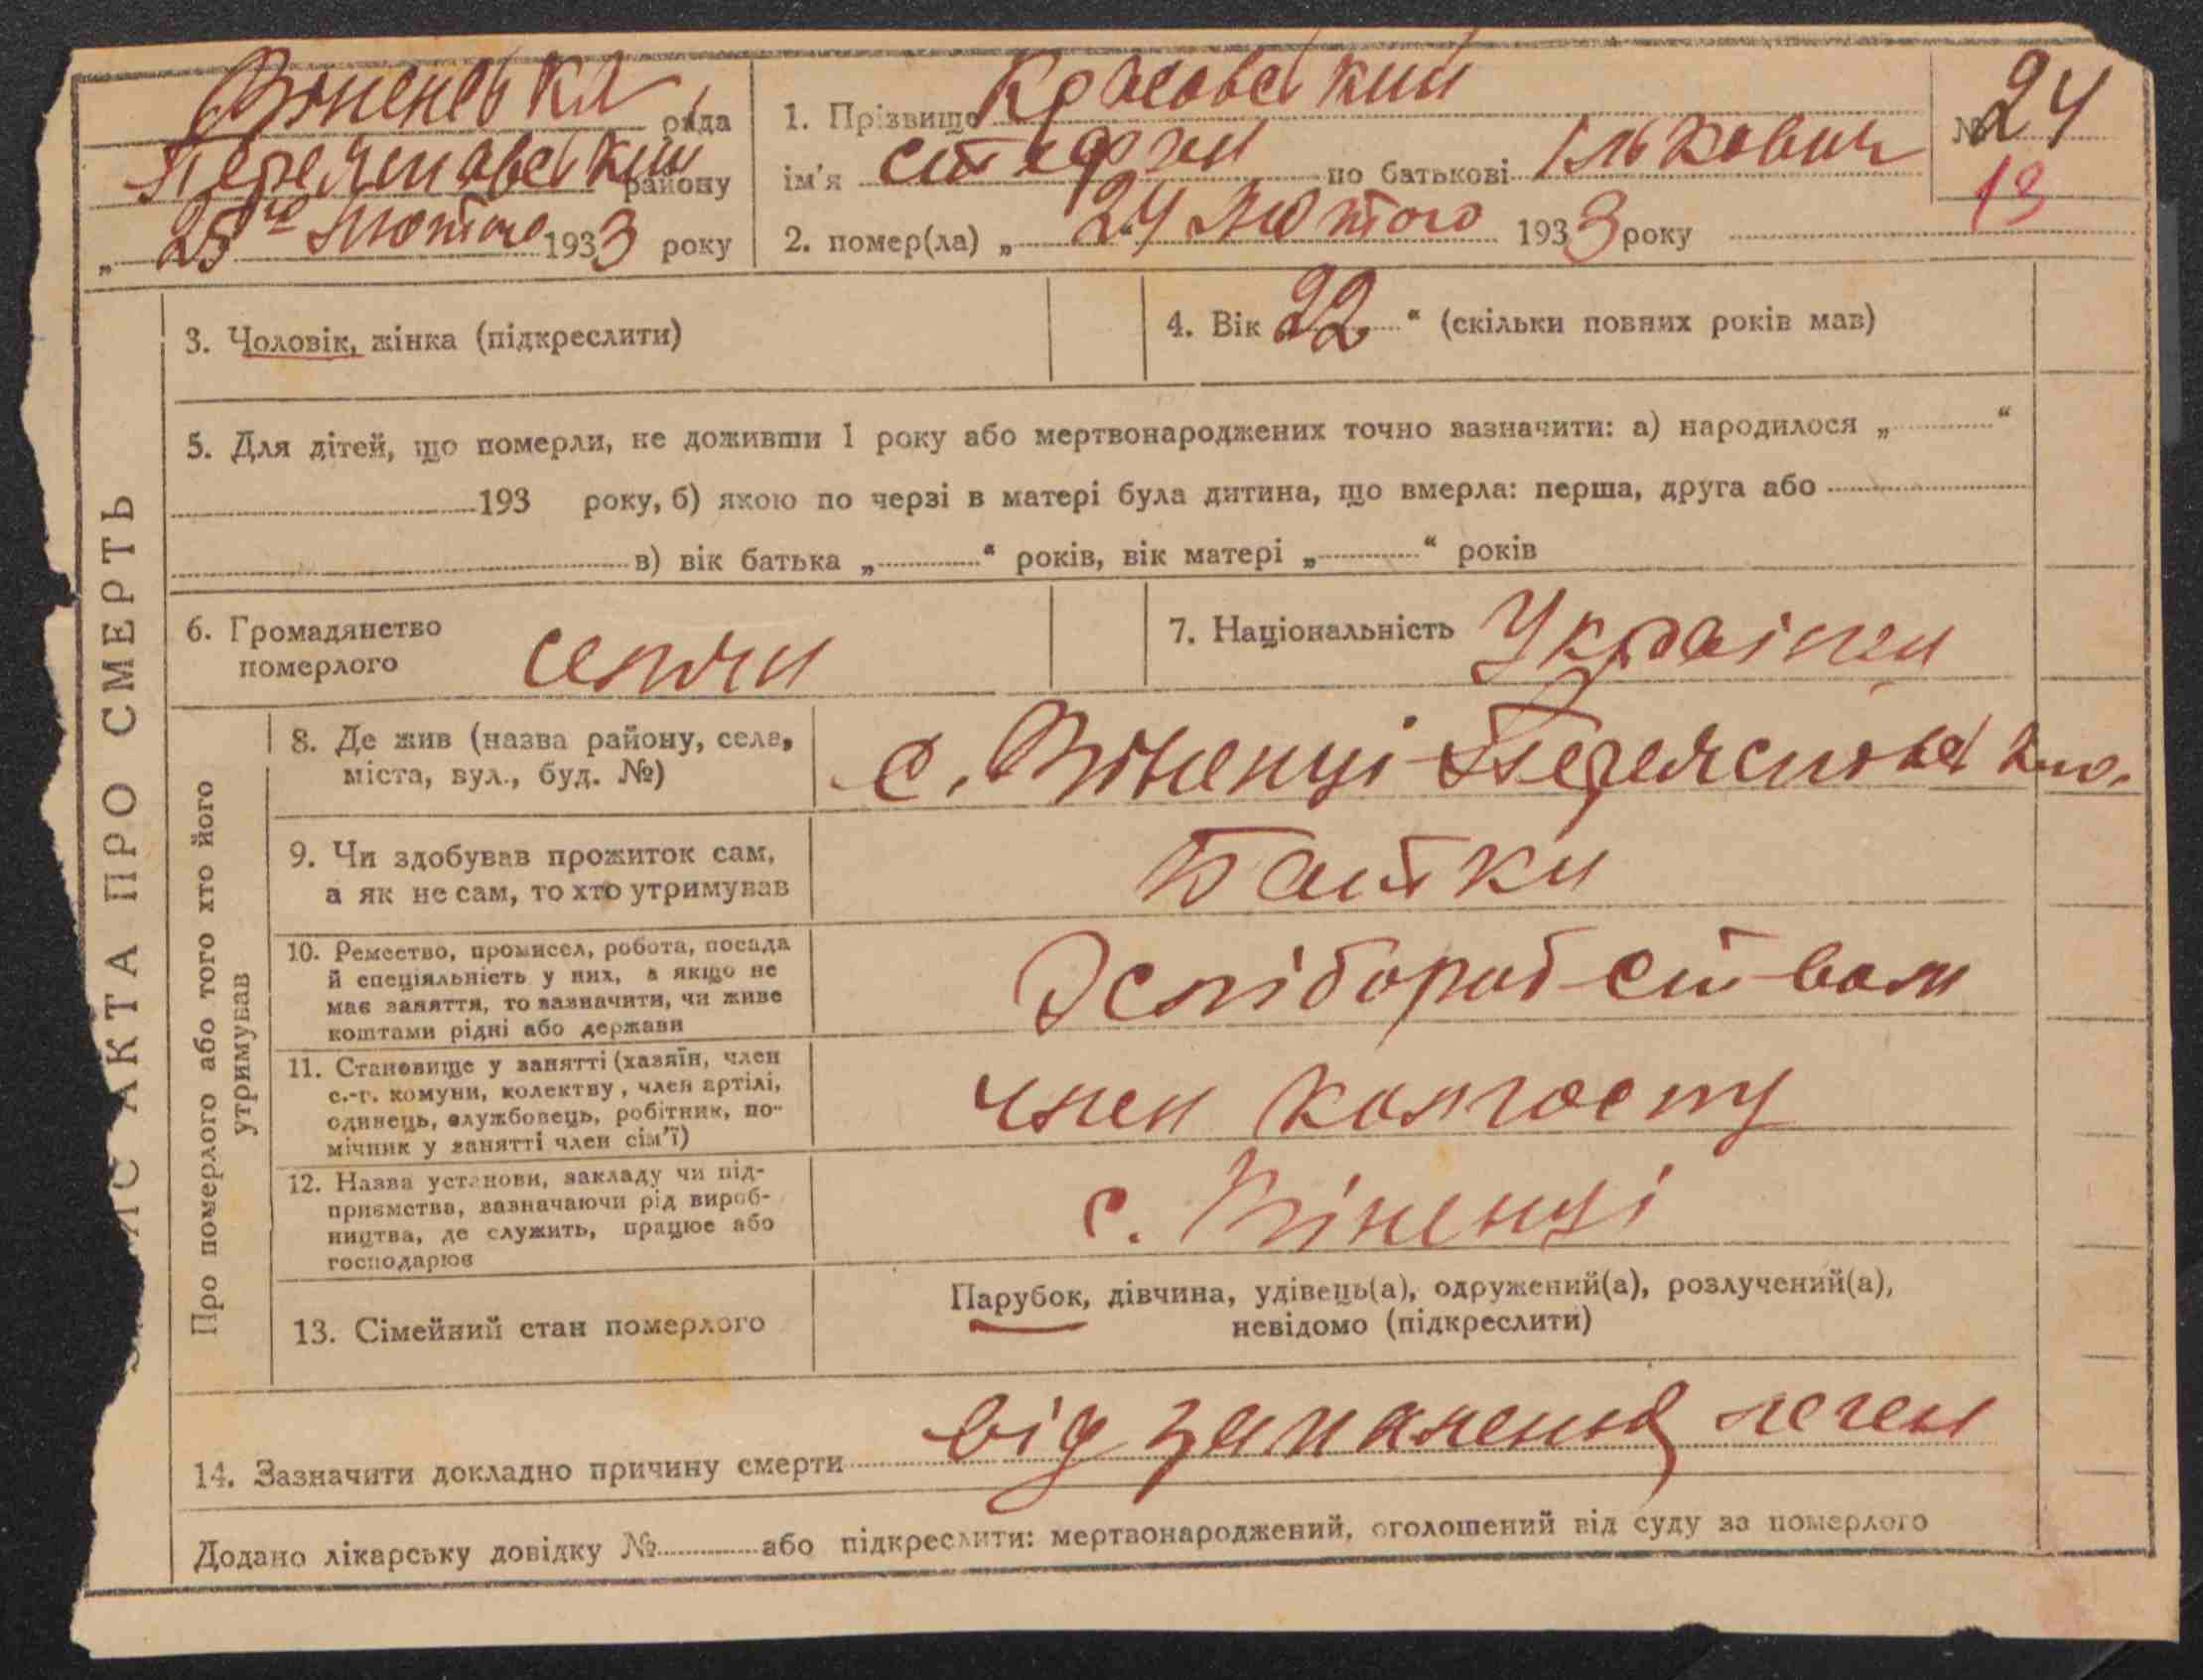 Віненська рада
Переяславський району
„ 25го Лютого 1933 року
1. Прізвище Красовський
ім'я Стефан по батькові Ількович
2. помер(ла) „ 24 Лютого 1933 року
№ 24
13
3. Чоловік, жінка (підкреслити)
4. Вік 22 “ (скільки повних років мав)
5. Для дітей, що померли, не доживши 1 року або мертвонароджених точно зазначити: а) народилося „ “
193 року, б) якою по черзі в матері була дитина, що вмерла: перша, друга або
в) вік батька „ “ років, вік матері „ “ років
6. Громадянство
померлого
селян
7. Національність Українец
ЗАПИС АКТА ПРО СМЕРТЬ
Про померлого або того хто його
утримував
8. Де жив (назва району, села,
міста, вул., буд. №)
с. Віненці Переяславськ
9. Чи здобував прожиток сам,
а як не сам, то хто утримував
Батьки
10. Ремество, промисел, робота, посада
й спеціяльність у них, а якщо не
має заняття, то зазначити, чи живе
коштами рідні або держави
Хсліборобством
11. Становище у занятті (хазяїн, член
с.-г. комуни, колектву, член артілі,
одинець, службовець, робітник, по-
мічник у занятті член сім'ї)
член колгоспу
12. Назва установи, закладу чи під-
приємства, зазначаючи рід вироб-
ництва, де служить, працює або
господарює
с. Віненці
13. Сімейний стан померлого
Парубок, дівчина, удівець(а), одружений(а), розлучений(а),
невідомо (підкреслити)
14. Зазначити докладно причину смерти від запалення леген
Додано лікарську довідку № або підкреслити: мертвонароджений, оголошений від суду за померлого